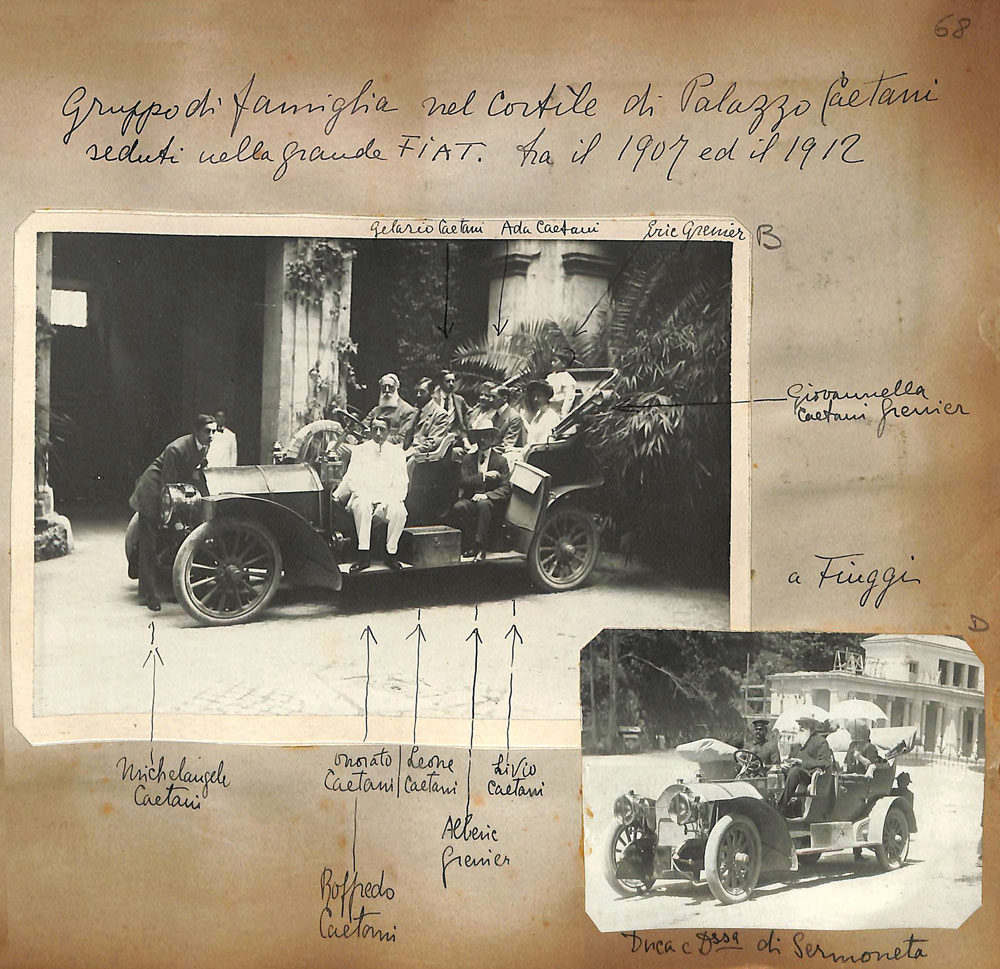 68
Gruppo di famiglia nel cortile di Palazzo Caetani
seduti nella grande FIAT. tra il 1907 ed il 1912
Gelasio Caetani
Ada Caetani
Eric Grenier
B
Giovannella
Caetani Grenier
a Fiuggi
D
Michelangelo
Caetani
Onorato
Caetani
Leone
Caetani
Livio
Caetani
Alberic
Grenier
Roffredo
Caetani
Duca e Dssa di Sermoneta